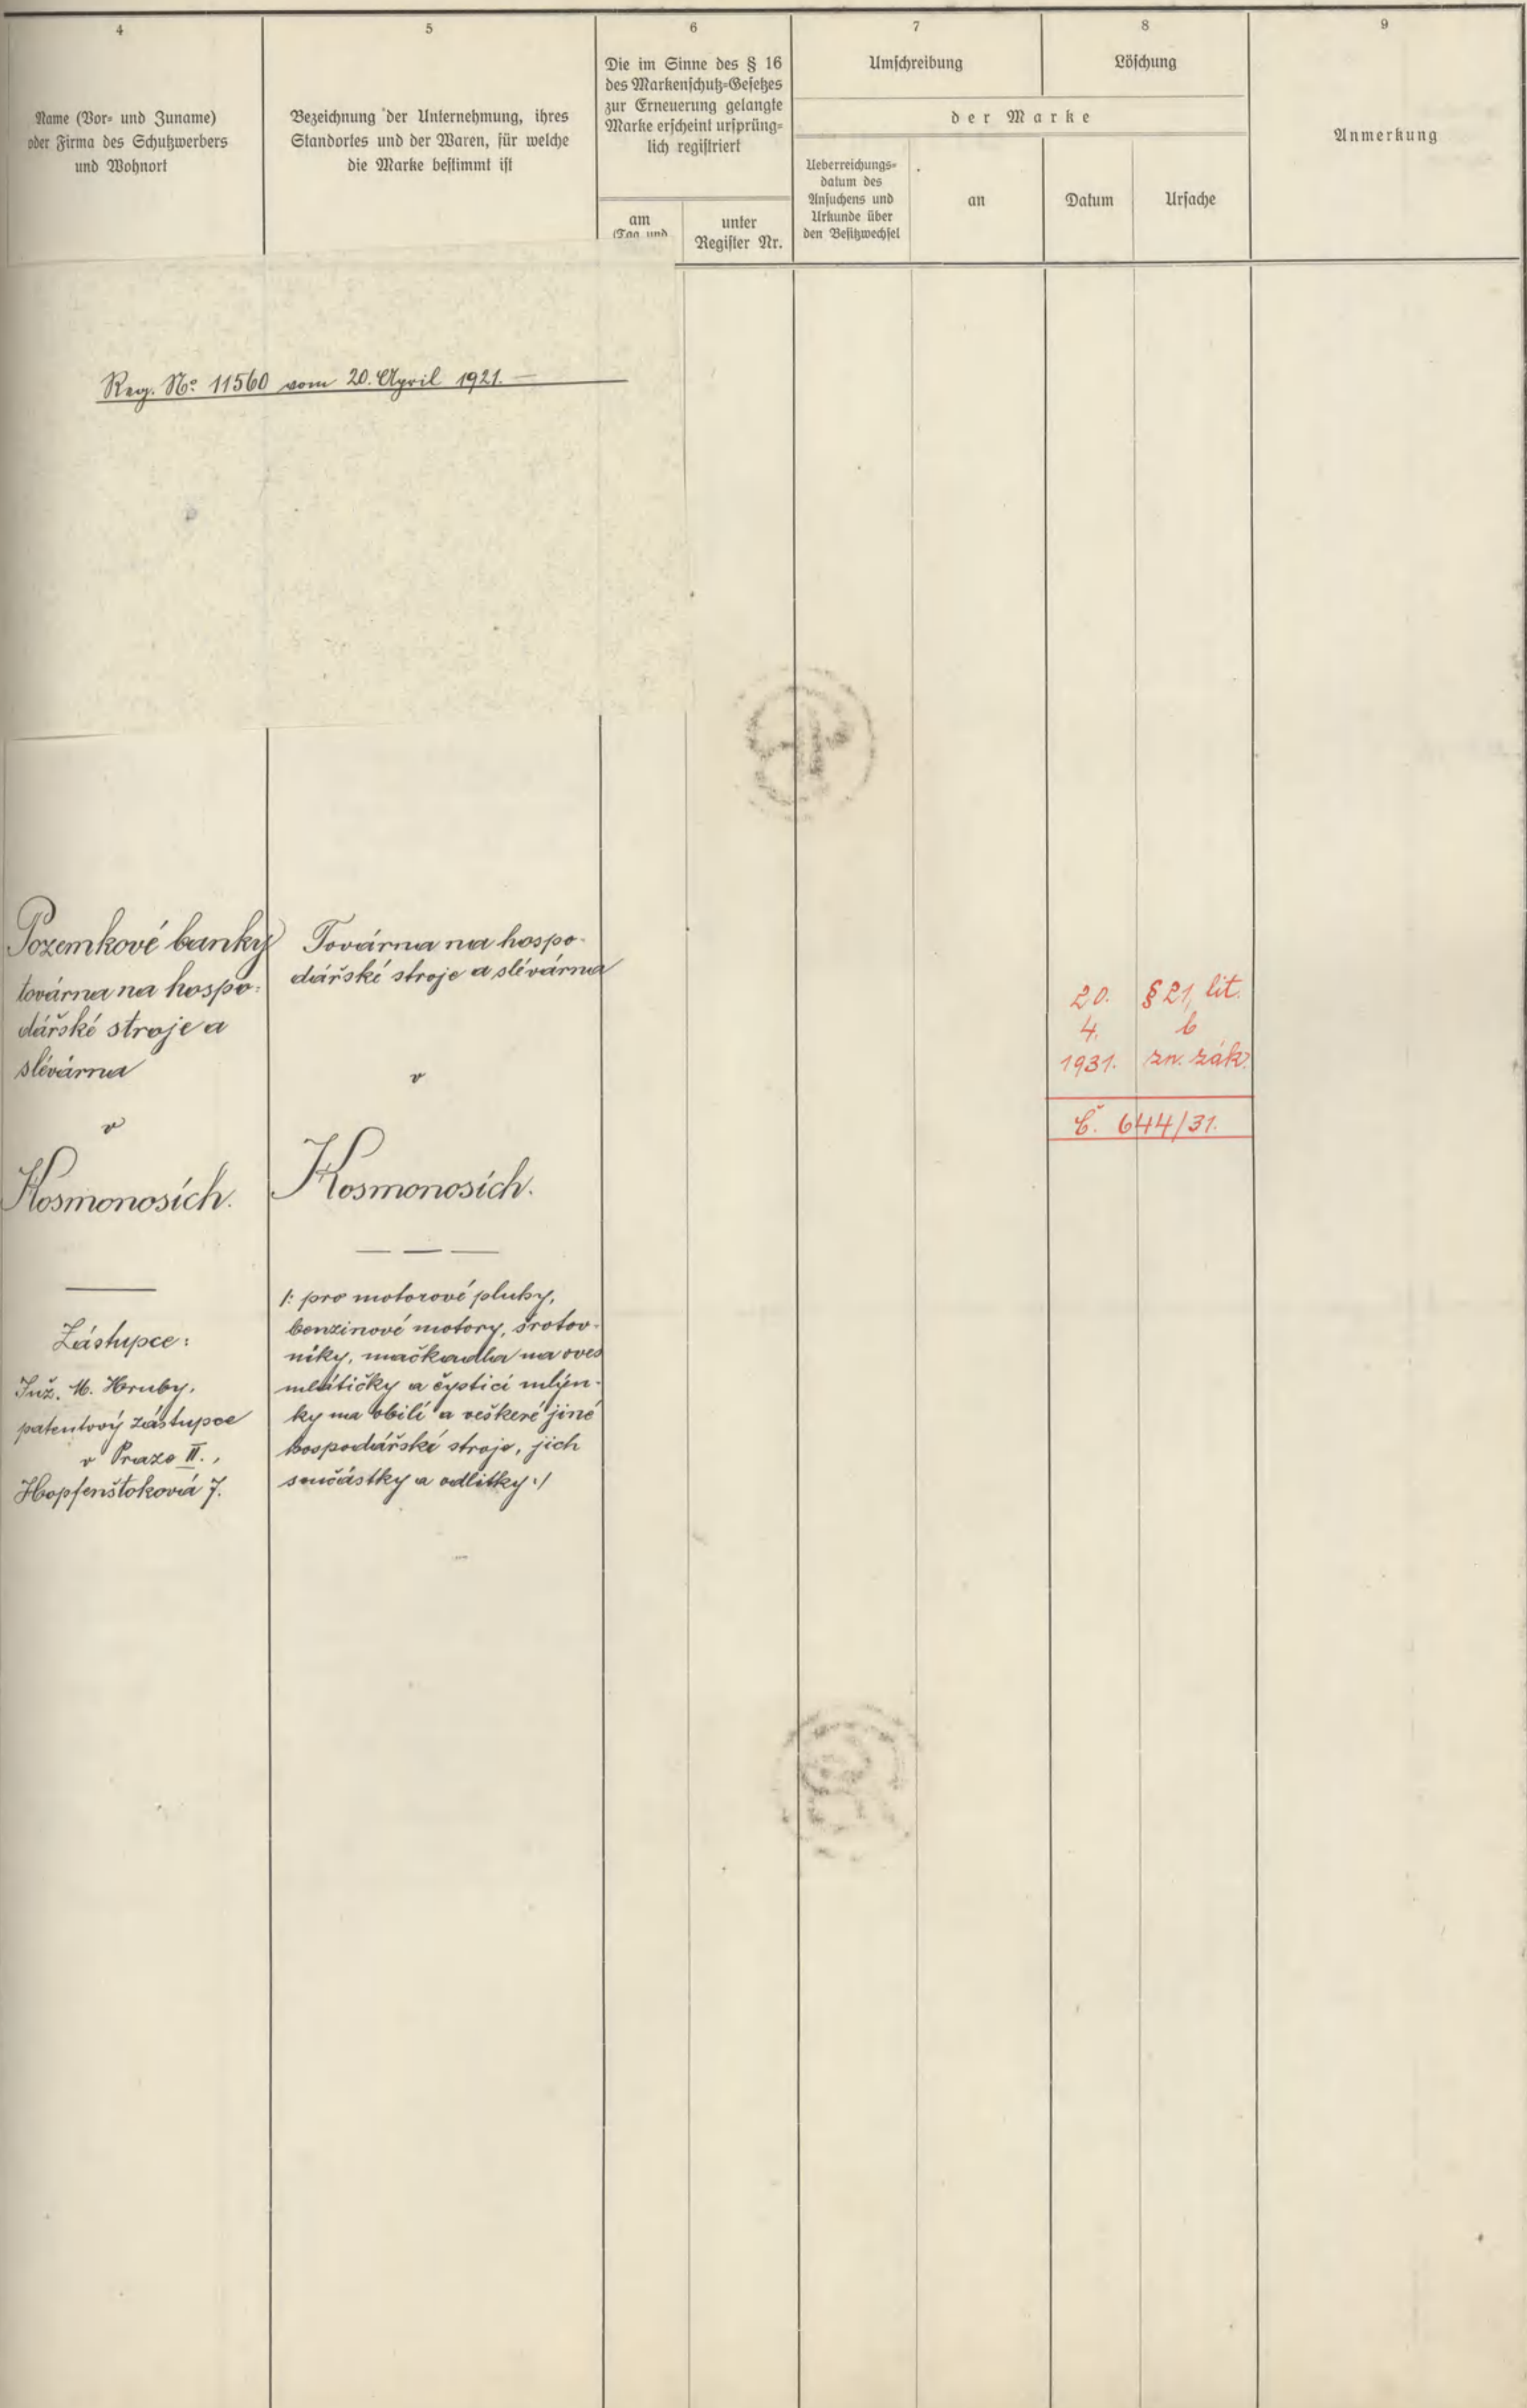 4
Name (Vor- und Zuname)
oder Firma des Schutzwerbers
und Wohnort
5
Bezeichnung der Unternehmung, ihres
Standortes und der Waren, für welche
die Marke bestimmt ist
6
Die im Sinne des § 16
des Markenschutz-Gesetzes
zur Erneuerung gelangte
Marke erscheint ursprüng-
lich registriert
am
(Tag und
unter
Register Nr.
7
Umschreibung
8
Löschung
der Marke
Ueberreichungs-
datum des
Ansuchens und
Urkunde über
den Besitzwechsel
an
Datum
Ursache
9
Anmerkung
Reg. No: 11560 vom 20. April 1921.
Pozemkové banky
továrna na hospo-
dářské stroje a
slévárna
v
Kosmonosích.
Zástupce:
Inž. M. Hruby,
patentový zástupce
v Praze II.,
Hopfenštoková 7.
Továrna na hospo-
dářské stroje a slévárna
v
Kosmonosích.
/: pro motorové pluhy,
benzinové motory, šrotov-
níky, mačkadla na oves
mlátičky a čysticí mlýn-
ky na obilí a veškeré jiné
hospodářské stroje, jich
součástky a odlitky :/
20.
4.
1931.
§ 21, lit.
b
zn. zák.
Č. 644/31.